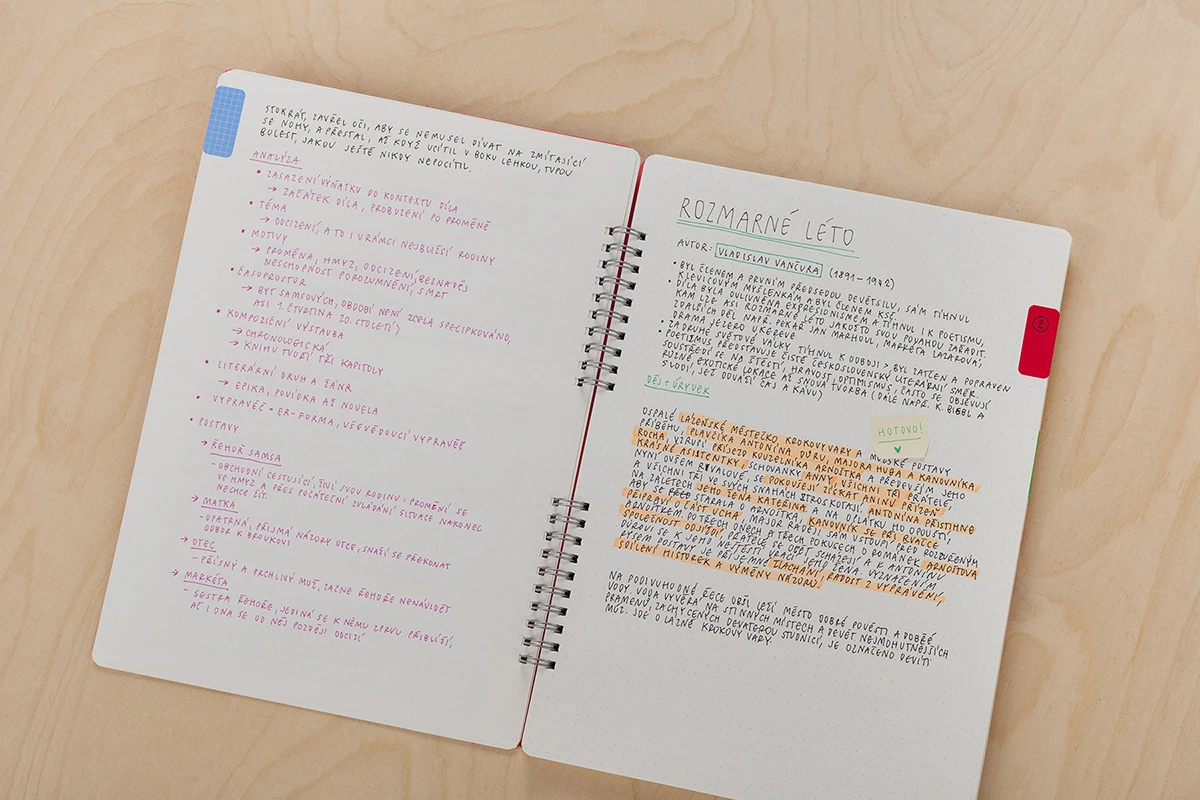 STOKRÁT, ZAVŘEL OČI, ABY SE NEMUSEL DÍVAT NA ZMÍTAJÍCÍ
SE NOHY, A PŘESTAL, AŽ KDYŽ UCÍTIL V BOKU LEHKOU, TUPOU
BOLEST, JAKOU JEŠTĚ NIKDY NEPOCÍTIL.
ANALÝZA
• ZASAZENÍ VÝŇATKU DO KONTEXTU DÍLA
→ ZAČÁTEK DÍLA, PROBUZENÍ PO PROMĚNĚ
• TÉMA
→ ODCIZENÍ, A TO I V RÁMCI NEJBLIŽŠÍ RODINY
• MOTIVY
→ PROMĚNA, HMYZ, ODCIZENÍ, BEZNADĚJ
NESCHOPNOST POROZUMNĚNÍ, SMRT
• ČASOPROSTOR
→ BYT SAMSOVÝCH, OBDOBÍ NENÍ ZCELA SPECIFIKOVÁNO,
ASI 1. ČTVRTINA 20. STOLETÍ)
• KOMPOZIČNÍ VÝSTAVBA
→ CHRONOLOGICKÁ
→ KNIHU TVOŘÍ TŘI KAPITOLY
• LITERÁRNÍ DRUH A ŽÁNR
→ EPIKA, POVÍDKA AŽ NOVELA
• VYPRAVĚČ = ER-FORMA, VŠEVĚDOUCÍ VYPRAVĚČ
• POSTAVY
→ ŘEHOŘ SAMSA
– OBCHODNÍ CESTUJÍCÍ, ŽIVÍ SVOU RODINU; PROMĚNÍ SE
VE HMYZ A PŘES POČÁTEČNÍ ZVLÁDÁNÍ SITUACE NAKONEC
NECHCE ŽÍT.
→ MATKA
– OPATRNÁ, PŘIJMÁ NÁZORY OTCE, SNAŽÍ SE PŘEKONAT
ODPOR K BROUKOVI
→ OTEC
– PŘÍSNÝ A PRCHLIVÝ MUŽ, ZAČNE ŘEHOŘE NENÁVIDĚT
→ MARKÉTA
– SESTRA ŘEHOŘE, JEDINÁ SE K NĚMU ZPRVU PŘIBLÍŽÍ,
AČ I ONA SE OD NĚJ POZDĚJI ODCIZÍ
ROZMARNÉ LÉTO
AUTOR: VLADISLAV VANČURA (1891–1942)
• BYL ČLENEM A PRVNÍM PŘEDSEDOU DEVĚTSILU, SÁM TÍHNUL
K LEVICOVÝM MYŠLENKÁM A BYL ČLENEM KSČ.
• DÍLA BYLA OVLIVNĚNA EXPRESIONISMEM A TÍHNUL I K POETISMU,
KAM LZE ASI ROZMARNÉ LÉTO JAKOŽTO SVOU POVAHOU ZAŘADIT.
Z DALŠÍCH DĚL NAPŘ. PEKAŘ JAN MARHOUL, MARKETA LAZAROVÁ,
DRAMA JEZERO UKEREVE
• ZA DRUHÉ SVĚTOVÉ VÁLKY TÍHNUL K ODBOJI > BYL ZATČEN A POPRAVEN
• POETISMUS PŘEDSTAVUJE ČISTĚ ČESKOSLOVENSKÝ LITERÁRNÍ SMĚR.
SOUSTŘEDÍ SE NA ŠTĚSTÍ, HRAVOST, OPTIMISMUS, ČASTO SE OBJEVUJÍ
RŮZNÉ, EXOTICKÉ LOKACE AŽ SNOVÁ TVORBA (DÁLE NAPŘ. K. BIEBL A
S LODÍ, JEŽ DOVÁŽÍ ČAJ A KÁVU)
DĚJ + ÚRYVEK
HOTOVO!
OSPALÉ LÁZEŇSKÉ MĚSTEČKO, KROKOVY VARY A MUŽSKÉ POSTAVY
PŘÍBĚHU, PLAVČÍKA ANTONÍNA DŮRU, MAJORA HUGA A KANOVNÍKA
ROCHA, VZRUŠÍ PŘÍJEZD KOUZELNÍKA ARNOŠTKA A PŘEDEVŠÍM JEHO
KRÁSNÉ ASISTENTKY, SCHOVANKY ANNY. VŠICHNI TŘI PŘÁTELÉ,
NYNÍ OVŠEM RIVALOVÉ, SE POKOUŠEJÍ ZÍSKAT ANINU PŘÍZEŇ
A VŠICHNI TŘI VE SVÝCH SNAHÁCH ZTROSKOTAJÍ. ANTONÍNA PŘISTIHNE
NA ZÁLETECH JEHO ŽENA KATEŘINA A NA OPLÁTKU HO OPOUŠTÍ,
ABY SE STARALA O ARNOŠTKA, KANOVNÍK SE PŘI RVAČCE
PŘIPRAVÍ O ČÁST UCHA, MAJOR RADĚJI SÁM USTOUPÍ PŘED ROZZUŘENÝM
ARNOŠTKEM. PO TŘECH DNECH A TŘECH POKUSECH O ROMÁNEK ARNOŠTOVA
SPOLEČNOST ODJÍŽDÍ, PŘÁTELÉ SE OPĚT SCHÁZEJÍ A K ANTONÍNU
DŮROVI SE K JEHO NEŠTĚSTÍ VRACÍ JEHO ŽENA. VÝZNAČENÍM
RYSEM POSTAV JE PŘÍJEMNÉ TLACHÁNÍ, RADOST Z VYPRÁVĚNÍ,
SDÍLENÍ HISTOREK A VÝMĚNY NÁZORŮ.
NA PODIVUHODNÉ ŘECE ORŠI LEŽÍ MĚSTO DOBRÉ POVĚSTI A DOBRÉ
VODY. VODA VYVĚRÁ NA STINNÝCH MÍSTECH A DEVĚT NEJMOHUTNĚJŠÍCH
PRAMENŮ, ZACHYCENÝCH DEVATEROU STUDNICÍ, JE OZNAČENO DEVÍTI
MÚZ. JDE O LÁZNĚ KROKOVY VARY.
2